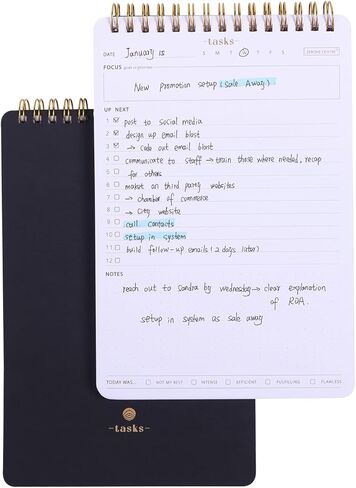 -tasks-
DATE January 15 S M T W T F S
FOCUS
New promotion setup (Sale Away)
UP NEXT
1 post to social media
2 design up email blast
3 → Code out email blast
4 communicate to staff → train those where needed, recap
5 for others
6 market on third party websites
7 → chamber of commerce
8 → City website
9 call contacts
10 setup in system
11 build follow-up emails (2 days later)
12
NOTES
reach out to Sandra by wednesday → clear explanation
of ROA.
setup in system as sale away
TODAY WAS... NOT MY BEST INTENSE EFFICIENT FULFILLING FLAWLESS
-tasks-